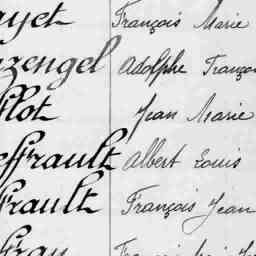 yet François Marie
zengel Adolphe Françoi
llot Jean Marie
effrault Albert Louis
frault François Jean
ffray